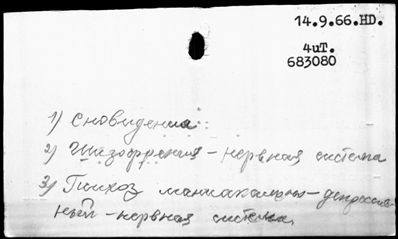 14.9.66.HD.
4иТ.
683080
1) Сновидения:
2) Шизофрения – нервная система
3) Психоз маниакально-депрессив
ный – нервная система.